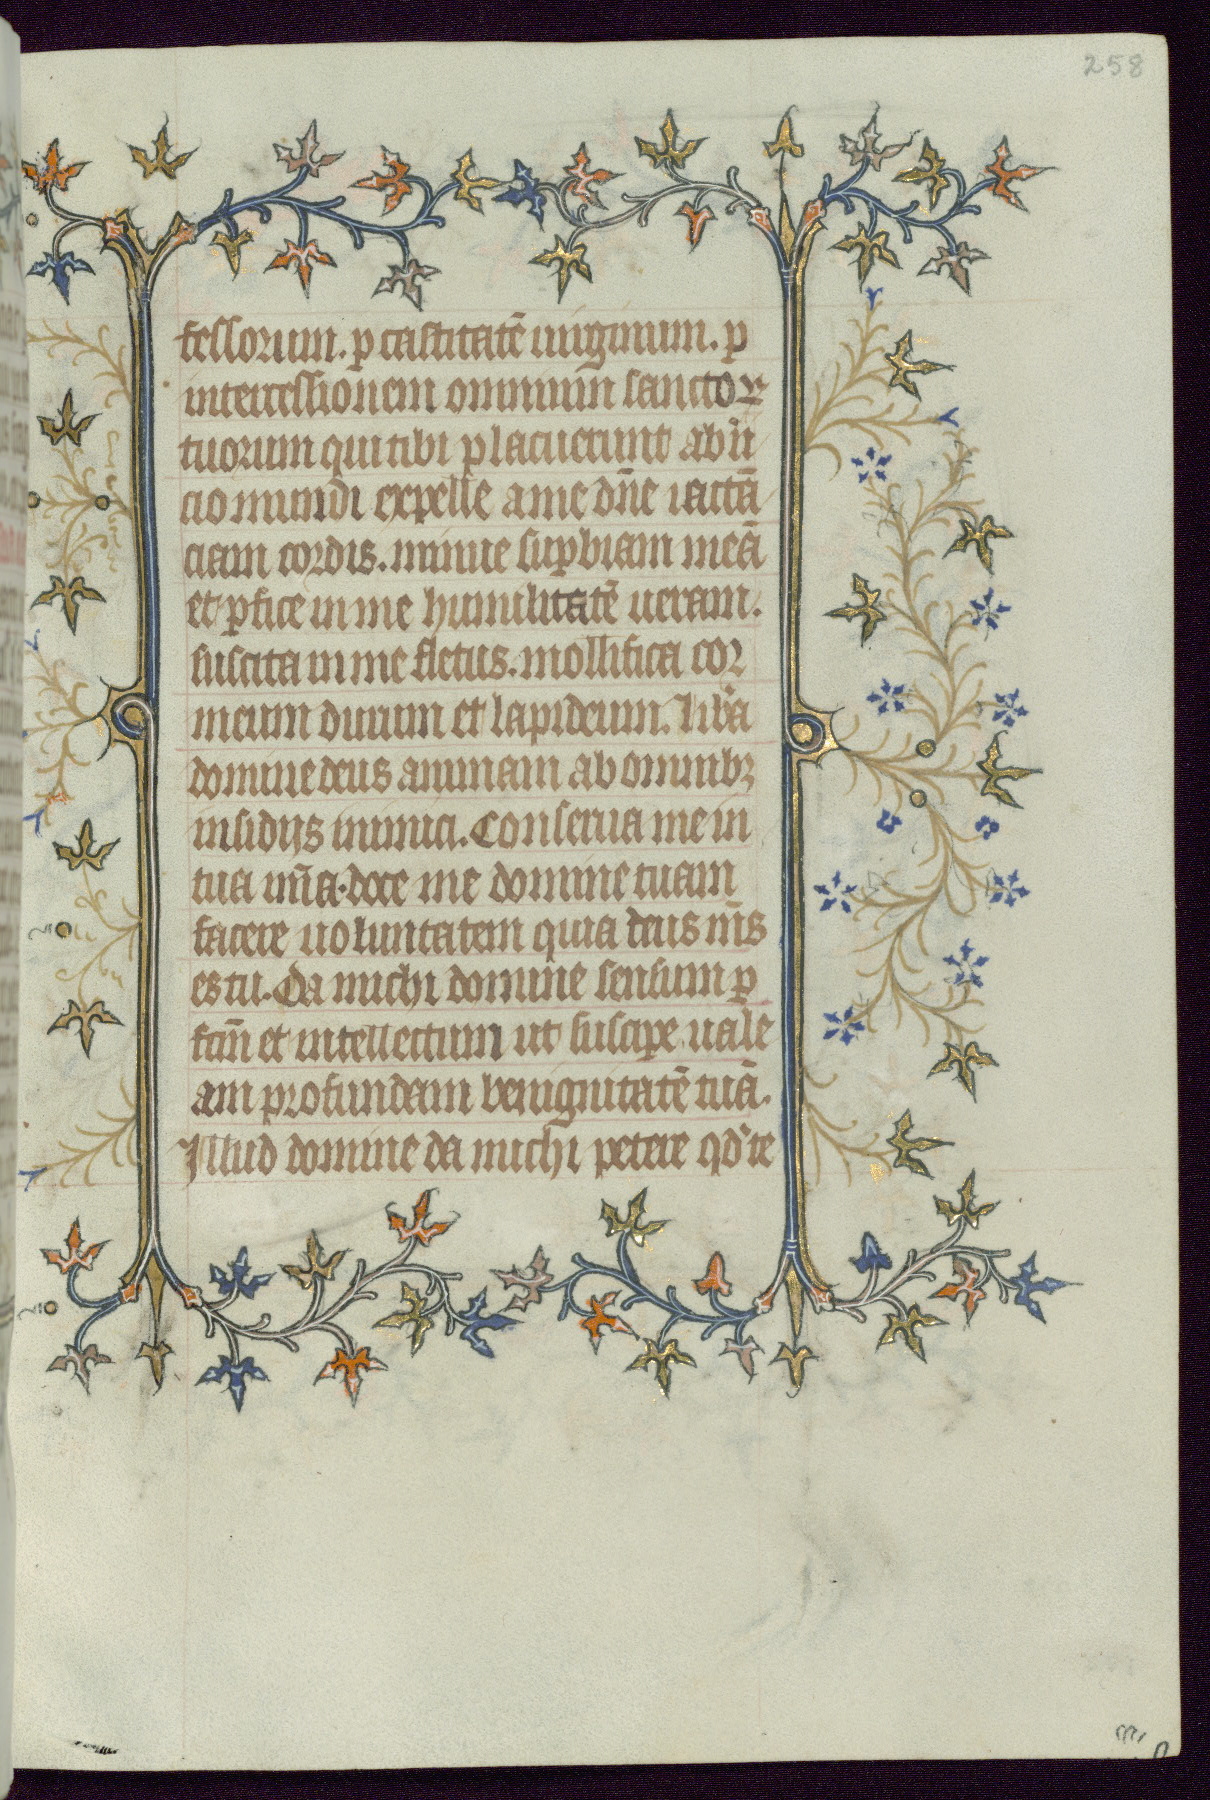 258
fessorum. p castitatē uirginum. p
intercessionem omnium sanctoꝝ
tuorum qui tibi placuerunt ab ini
cio mundi expelle a me dn̄e iactā
ciam cordis. minue supbiam meā
et pfice in me humilitatē ueram.
suscita in me fletus. mollifica cor
meum durum et lapideum. libͣa
domine deus animam ab omnibꝫ
insidijs inimici. Conserua me in
tua uol̄a. doce me domine tuam
facere uoluntatem quia deus m̄s
es tu. Da michi domine sensum p
fc̄m et intellectum ut suscipe uale
am profundam benignitatē tuā.
Illud domine da michi petere qd' te